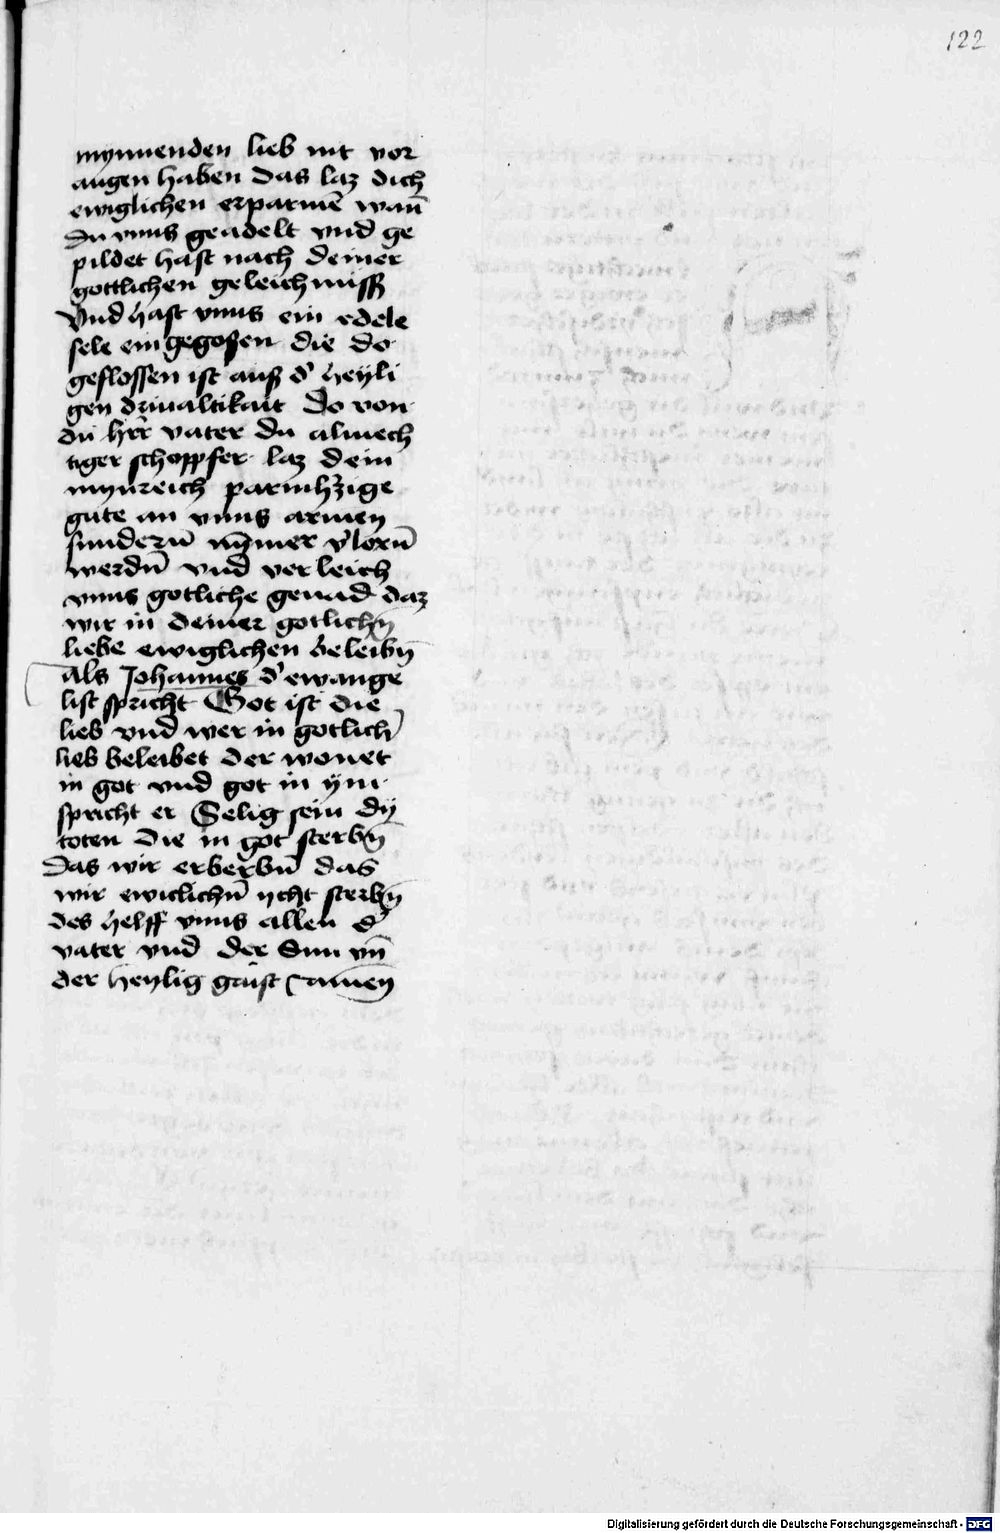 122
mynnenden lieb nit vor
augen haben das laz dich
ewiglichen erparmē wañ
du vnns geadelt vnd ge
pildet hast nach deiner
gottlichen geleichnuß
Vnd hast vnns ein edele
sele ein gegoßen die do
geflossen ist auß d' heyli
gen driualtikait Do von
du hr̄r vater du almech
tiger schoppfer laz dein
mynreich parmhʼzige
gute an vnns armen
sunderñ nȳmer vʼlorñ
werdñ vnd verleich
vnns gotliche genad daz
wir in deiner gotlichn̄
liebe ewiglichen beleibn̄
Als Johannes dʼ ewange
list spricht Got ist die
lieb vnd wer in gotlichʼ
lieb beleibet der wonet
in got vnd got in ym
spricht er Selig sein dy
toten die in got sterbn̄
Das wir erberbñ das
wir ewiclichñ ycht sterbn̄
des helff vnns allen dʼ
vater vnd der Sun vn̄
der heylig gaist Amen
Digitalisierung gefördert durch die Deutsche Forschungsgemeinschaft - DFG